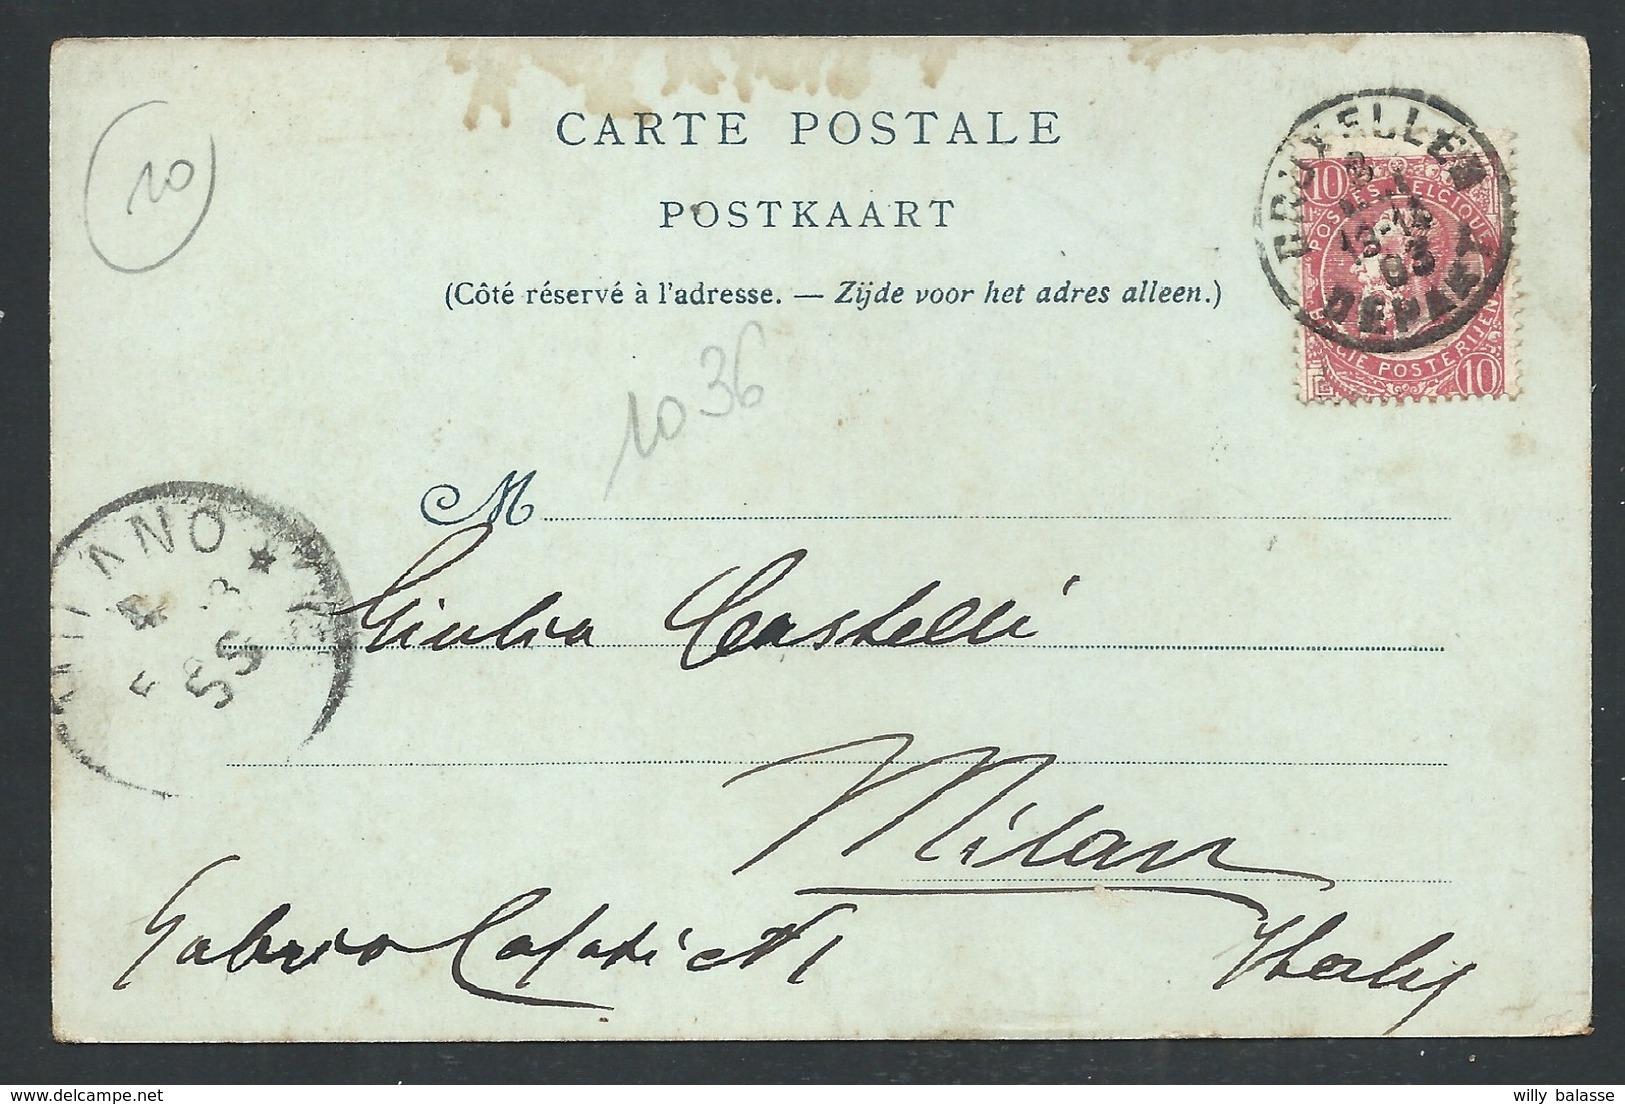 CARTE POSTALE
POSTKAART
(Côté réservé à l'adresse. — Zijde voor het adres alleen.)
10
1036
BRUXELLES
13-14
03
DEPART
10 POSTES BELGIQUE
BELGIE POSTERIJEN 10
M
MILANO
Giulia Castelli
Milan
Italy
Gabrio
willy balasse